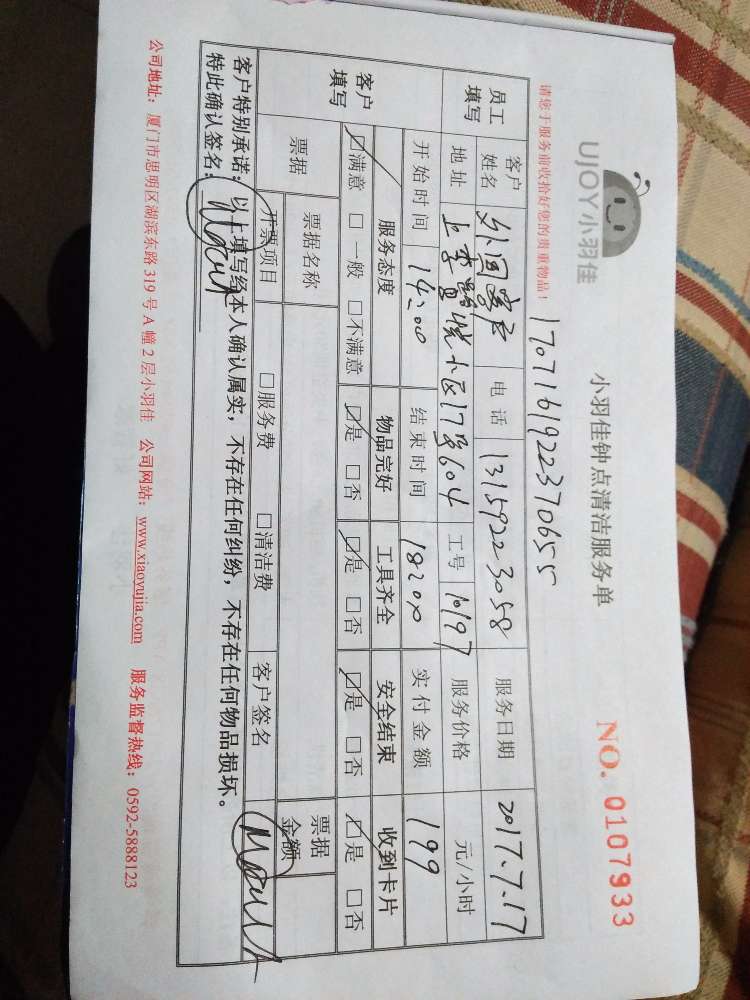 UJOY小羽佳
小羽佳钟点清洁服务单
NO. 0107933
请您于服务前收拾好您的贵重物品！
1707161922370655
员工填写 客户姓名 外国客户 电话 13159223058 服务日期 2017.7.17
地址 小区17号604 工号 10197 服务价格 元/小时
开始时间 14:00 结束时间 18:00 实付金额 199
客户填写 服务态度 物品完好 工具齐全 安全结束 收到卡片
☑满意 □一般 □不满意 ☑是 □否 ☑是 □否 ☑是 □否 ☑是 □否
票据 票据名称 票据金额
开票项目 □服务费 □清洁费 客户签名
客户特别承诺：以上填写经本人确认属实，不存在任何纠纷，不存在任何物品损坏。
特此确认签名：
公司地址：厦门市思明区湖滨东路 319 号 A 幢 2 层小羽佳 公司网站：www.xiaoyujia.com 服务监督热线：0592-5888123